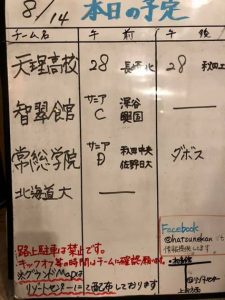 8/14 本日の予定
チーム名 午前 午後
天理高校 28 長原北 28 秋田工
智翠館 サニアC 深谷 興国 ―
常総学院 サニアD 秋田中央 佐野日大 ダボス
北海道大 ―
※路上駐車は禁止です。
キックオフ等の時間はチームに確認願います。
※グラウンドMapは
リゾートセンターにて配布しております
Facebook
@hatsunekan にて
情報提供してます